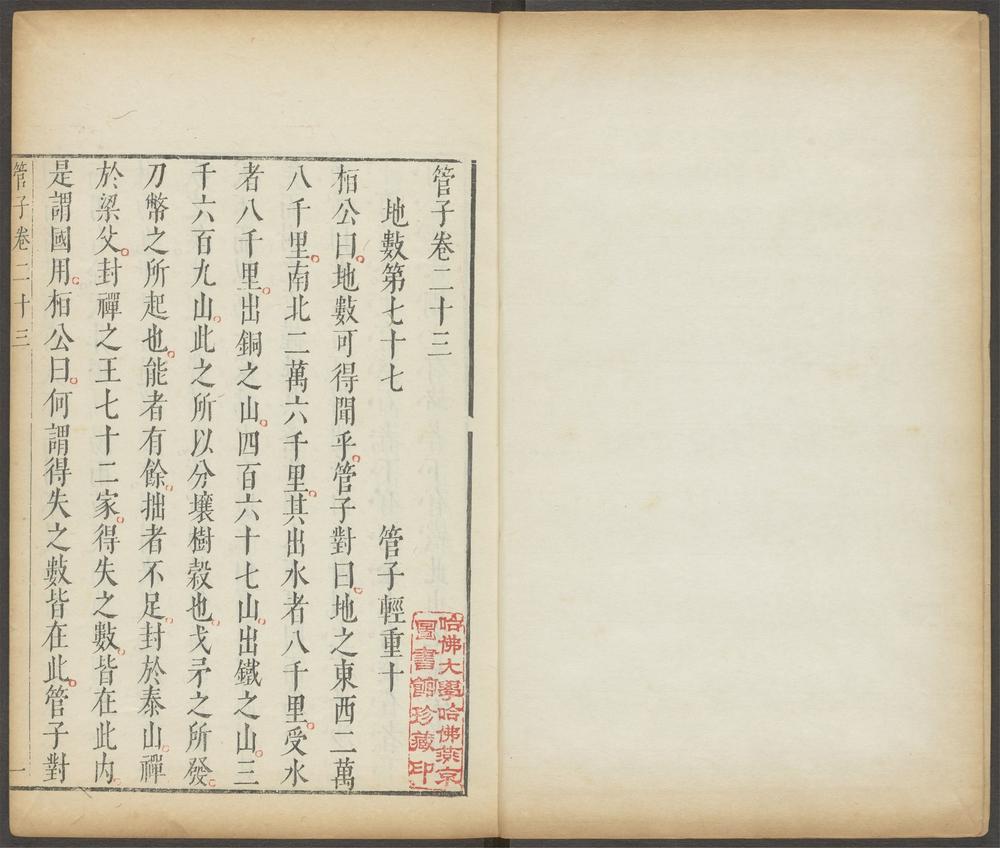 管子卷二十三
地數第七十七　管子輕重十
桓公曰地數可得聞乎管子對曰地之東西二萬
八千里南北二萬六千里其出水者八千里受水
者八千里出銅之山四百六十七山出鐵之山三
千六百九山此之所以分壤樹穀也戈矛之所發
刀幣之所起也能者有餘拙者不足封於泰山禪
於梁父封禪之王七十二家得失之數皆在此內
是謂國用桓公曰何謂得失之數皆在此管子對
管子卷二十三　一
哈佛大學哈佛燕京
圖書館珍藏印